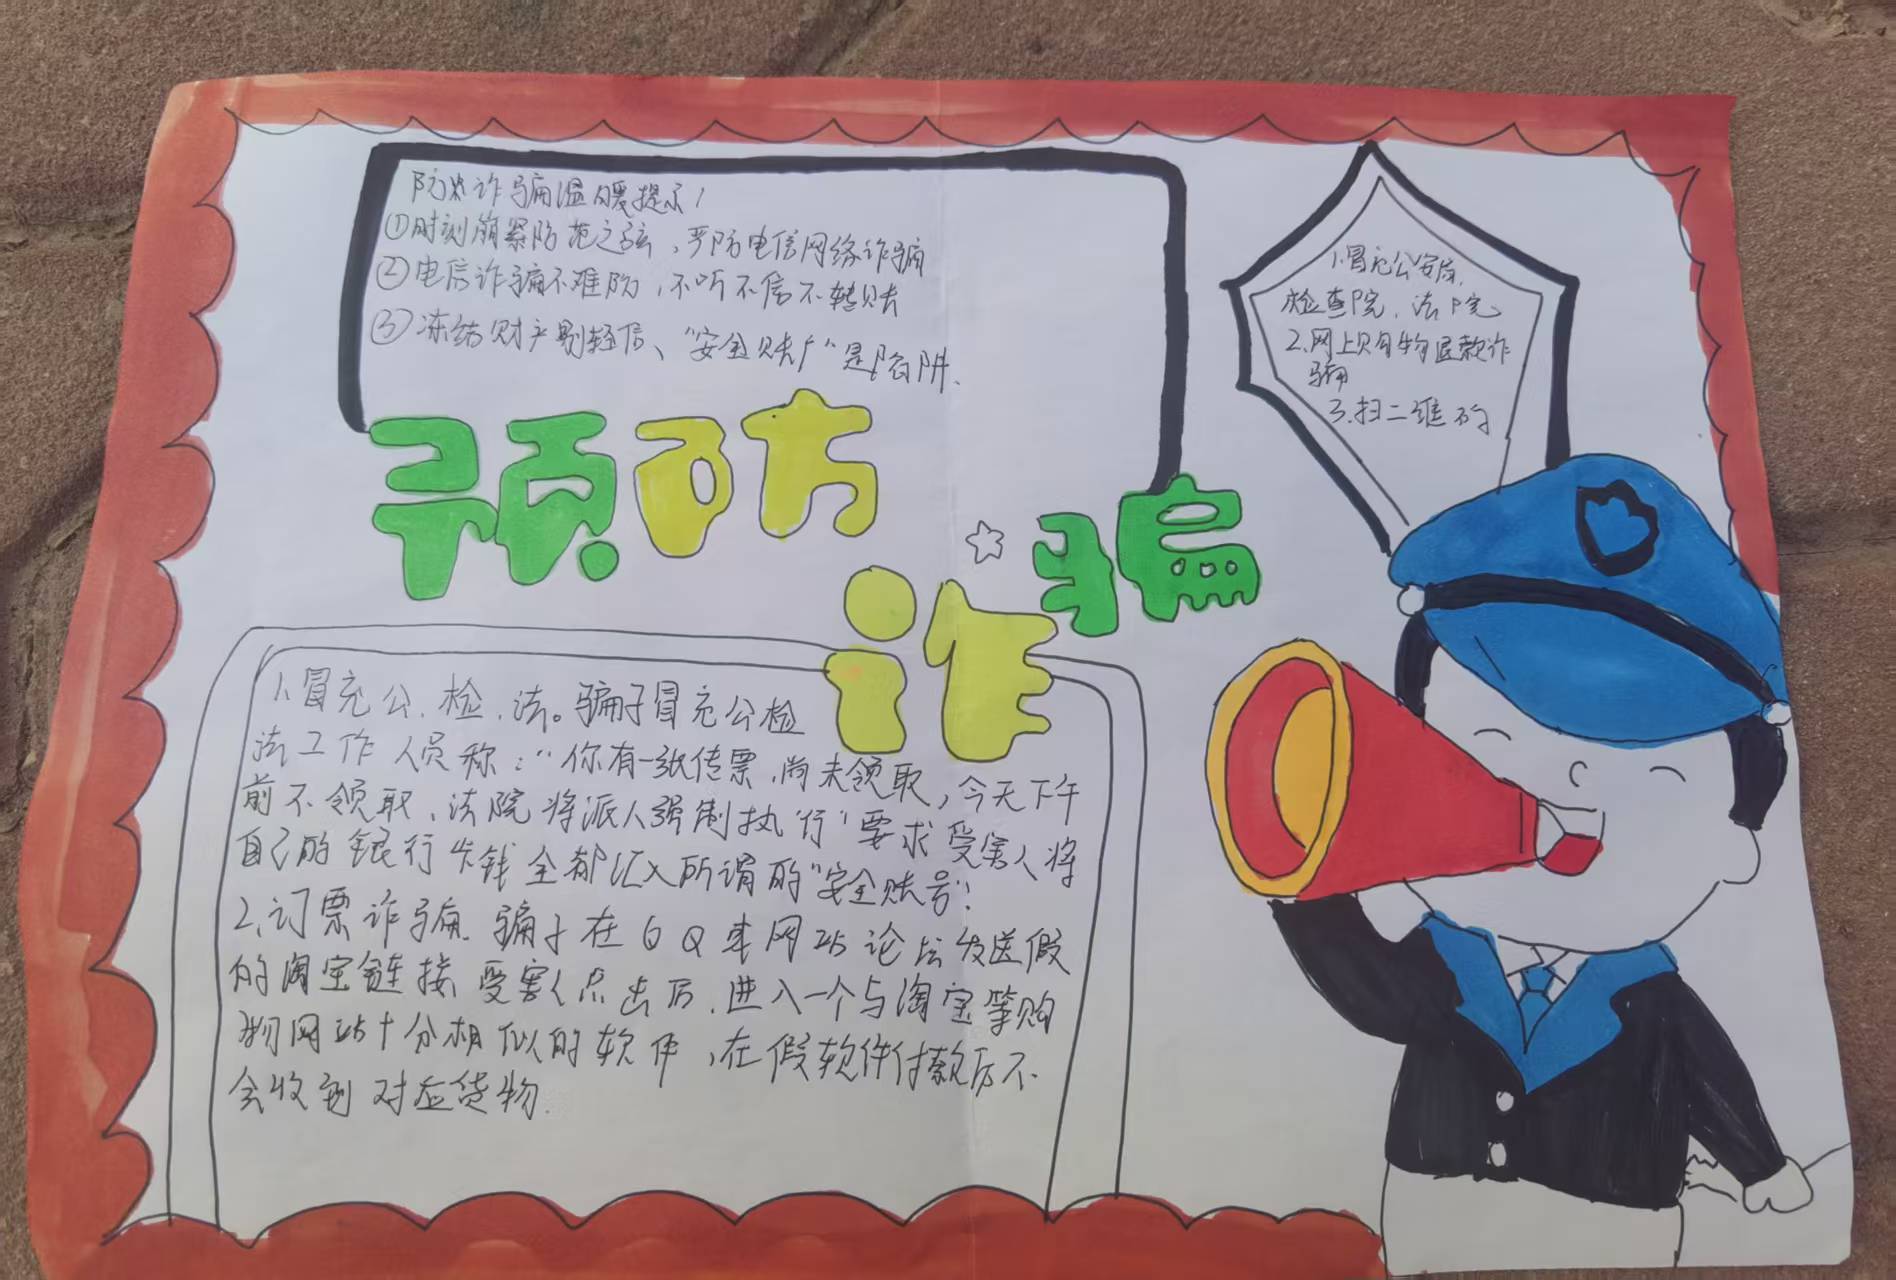 防炎诈骗温暖提示!
①时刻崩紧防范之弦，严防电信网络诈骗
②电信诈骗不难防，不听不信不转账
③冻结财产别轻信、“安全账户”是陷阱.
1.冒充公安局,
检查院，法院
2.网上购物退款诈
骗
3.扫二维码
预防
诈骗
1.冒充公、检、法。骗子冒充公检
法工作人员称：“你有一张传票，尚未领取，今天下午
前不领取，法院将派人强制执行”要求受害人将
自己的银行卡钱全都汇入所谓的“安全账号”!
2.订票诈骗. 骗子在QQ
网站论坛发送假
的淘宝链接 受害人点击后，进入一个与淘宝等购
物网站十分相似的软件，在假软件付款后不
会收到对应货物.